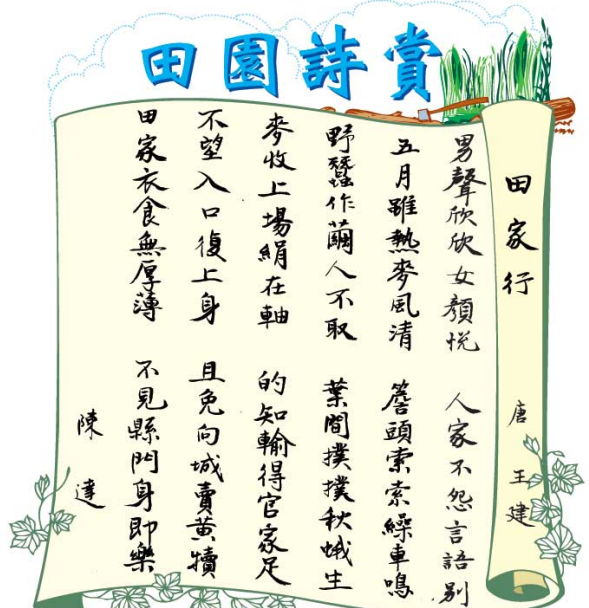 田園詩賞
田家行 唐 王建
男聲欣欣女顏悅 人家不怨言語別
五月雖熱麥風清 簷頭索索繰車鳴
野蠶作繭人不取 葉間撲撲秋蛾生
麥收上場絹在軸 的知輸得官家足
不望入口復上身 且免向城賣黃犢
田家衣食無厚薄 不見縣門身即樂
陳達